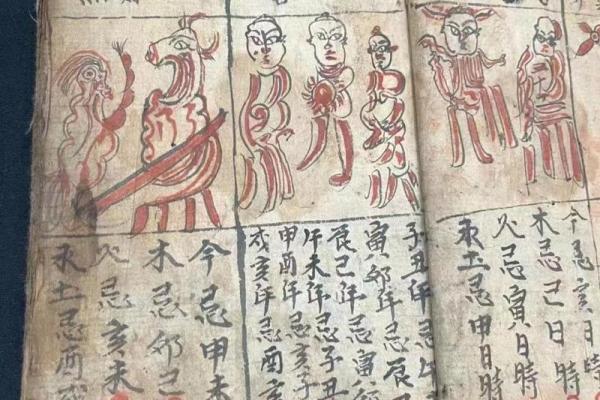 今忌亥日時
木忌己日時
火忌寅日時
水土忌申日時
子丑年忌
寅夘年忌辰
辰己年忌寅夘
午未年忌子丑
申酉年忌亥子
戌亥年忌酉亥
今忌申未
木忌夘己
火忌亥未
水土忌酉戌